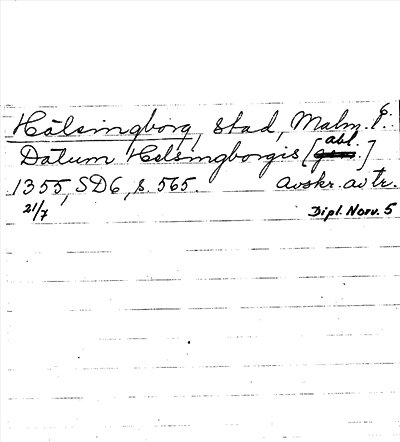 Hälsingborg, stad, Malm. l.
Datum Helsingborgis [abl.]
1355, SD6, s. 565. avskr. av tr.
21/7 Dipl. Norv. 5